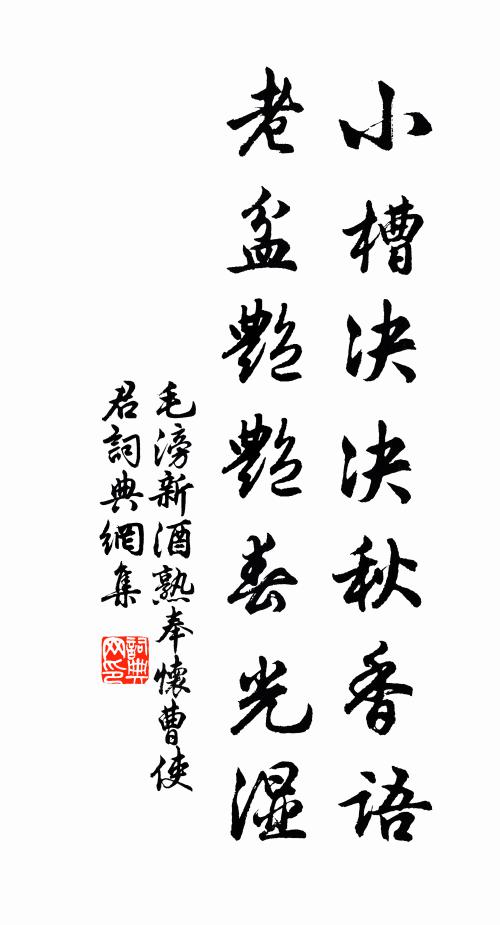 小槽決決秋香語
老盆艷艷春光濕
毛滂新酒熟奉懷曹使
君詞典網集
詞典
网印